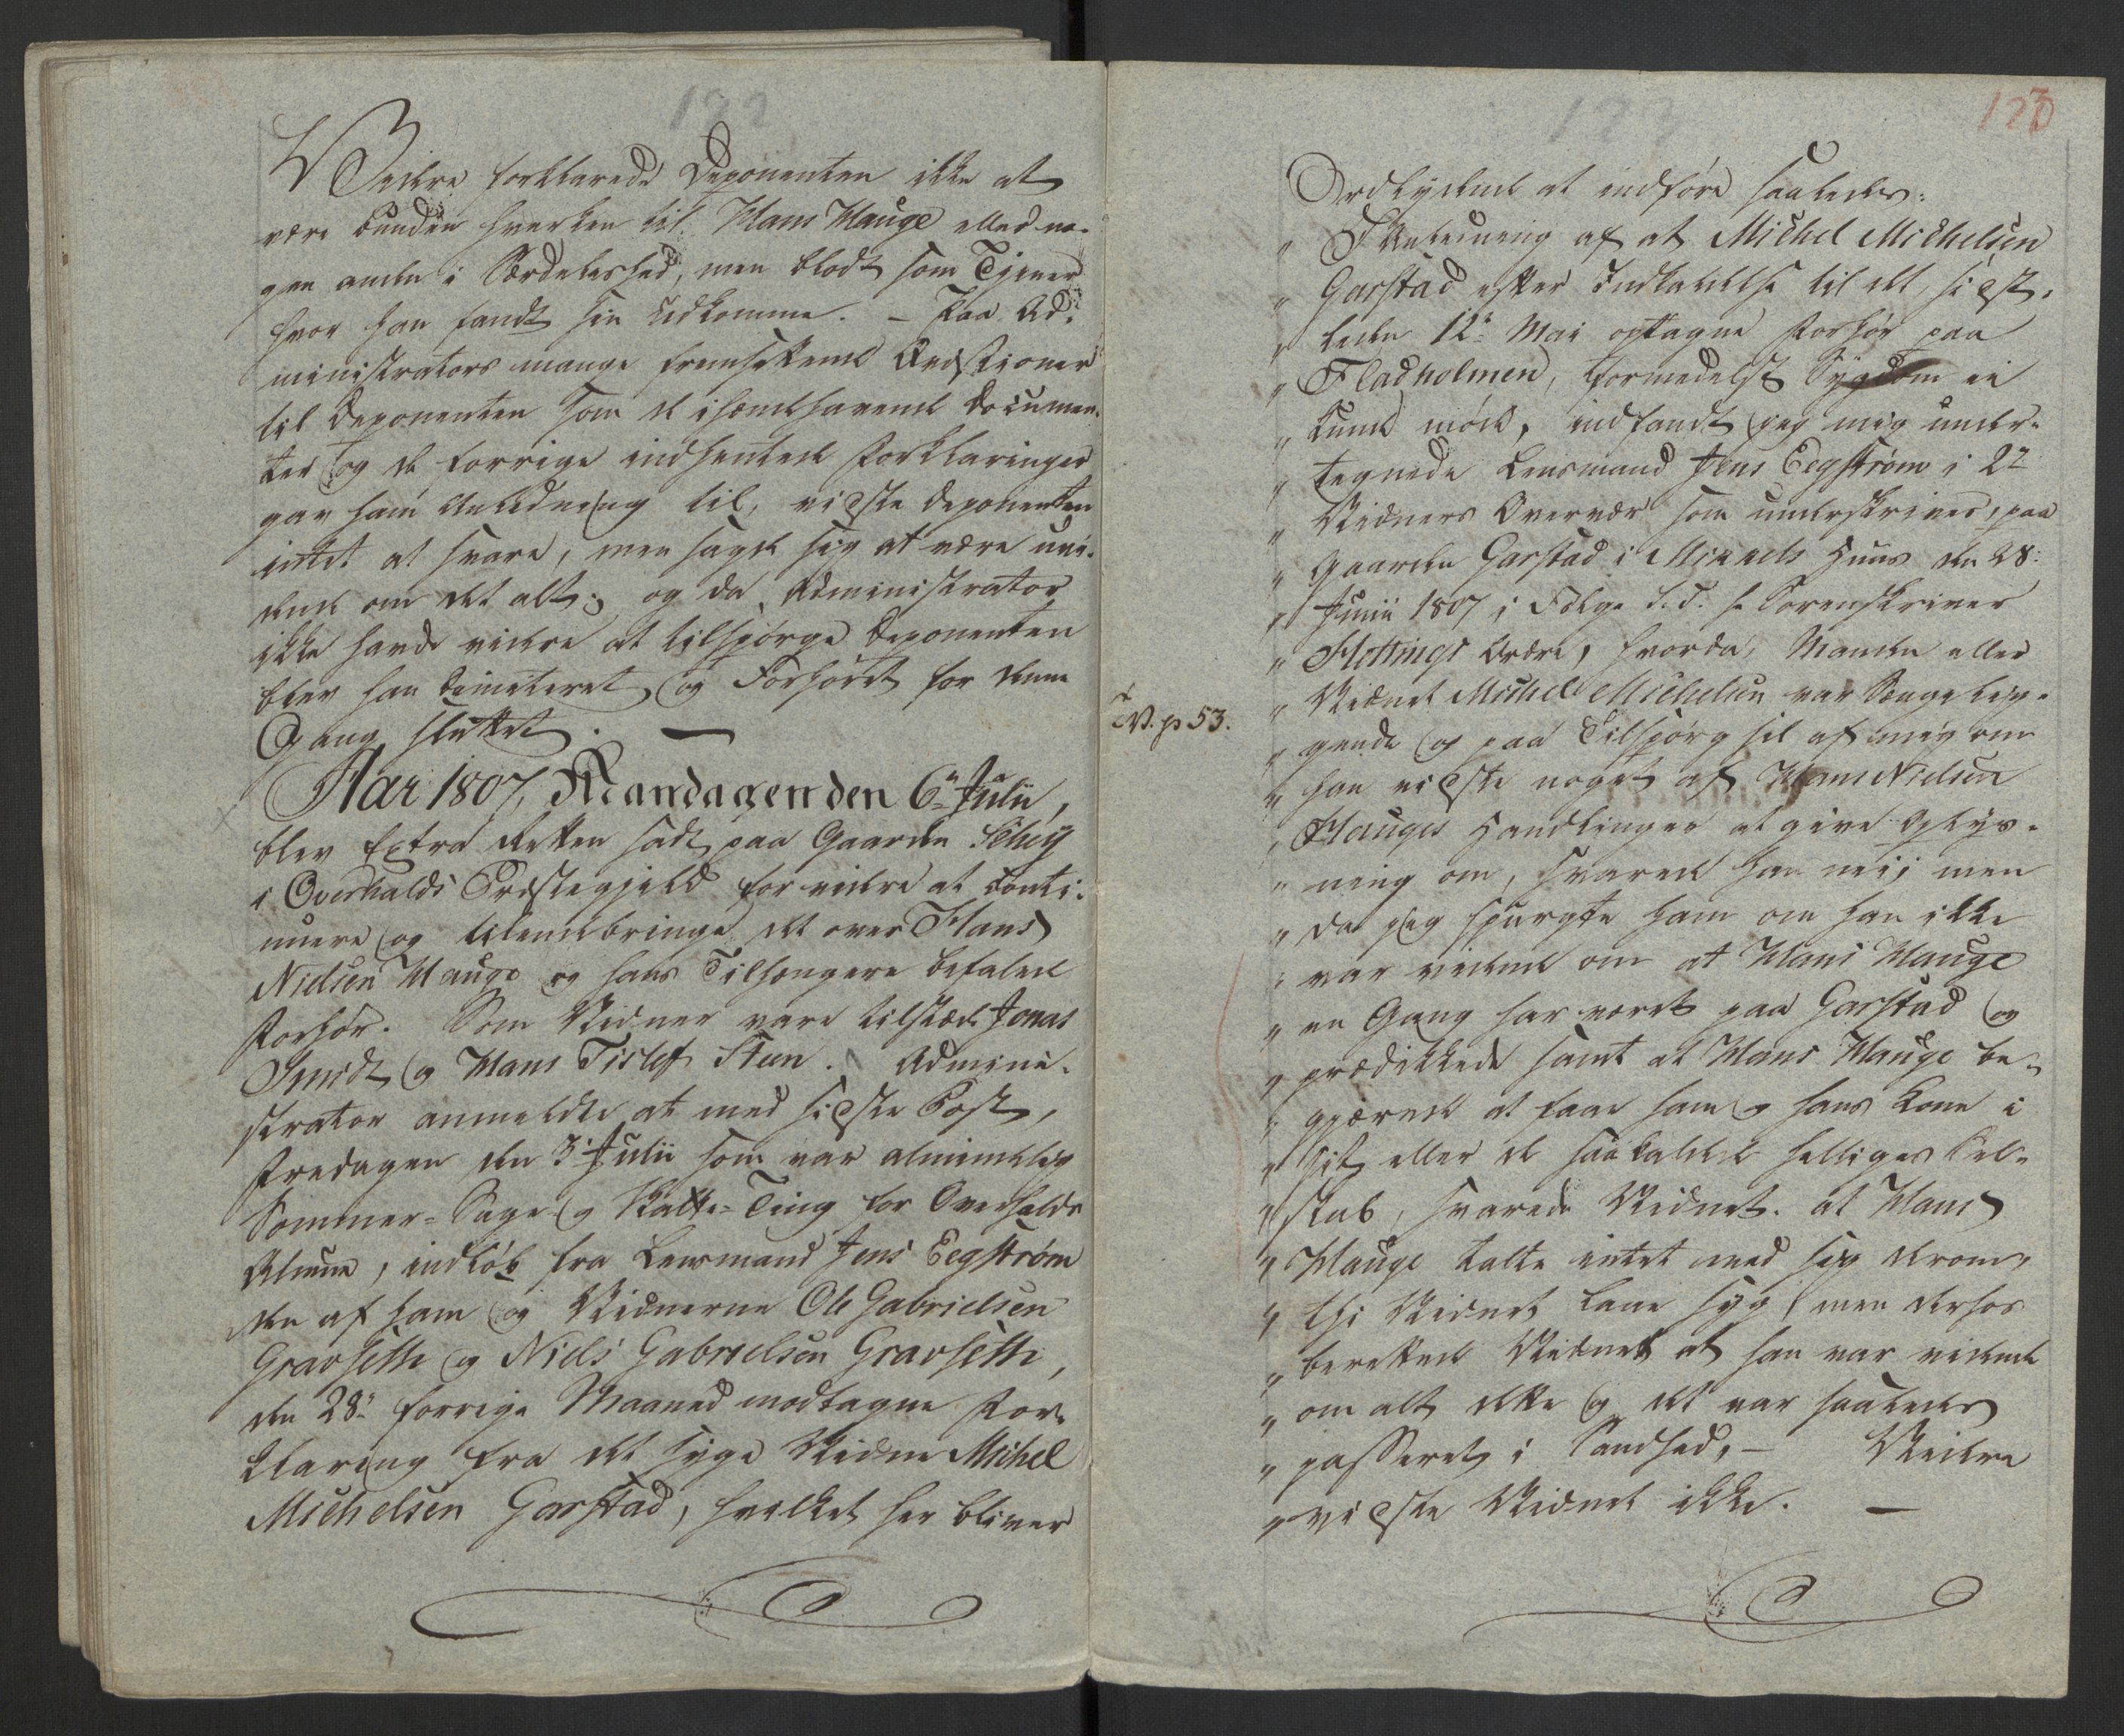 122
Videre forklarede Deponenten ikke at
være bunden hverken til Hans Hauge eller no-
gen anden i Særdeleshed, men blodt som Tjener
hvor han fandt sin Udkomme. – Paa Ad-
ministrators mange fremsættende Qvæstioner
til Deponenten som de ihændehavende Documen-
ter og de forrige indhentede Forklaringer
gav ham Anledning til, vidste Deponenten
intet at svare, men sagde sig at være uvi-
dende om det alt; og da Administrator
ikke havde videre at tilspørge Deponenten
blev han dimeteret og Forhøret for denne
Gang sluttet. —
Aar 1807, Mandagen den 6te Julii,
blev Extra Retten sadt paa Gaarden Schey
i Overhalds Præstegjeld for videre at conti-
nuere og tilendebringe det over Hans
Nielsen Hauge og hans Tilhængere befalede
Forhør. Som Vidner vare tilstæde Jonas
Smidt og Hans Tislef Steen. Admini-
strator anmeldte at med sidste Post,
Fredagen den 3die Julii som var almindelig
Sommer- Sage- og Skatte-Ting for Overhalds
Almue, indløb fra Lensmand Jens Eegstrøm
den af ham og Vidnerne Ole Gabrielsen
Gravseth og Niels Gabrielsen Gravseth,
den 28de forrige Maaned modtagne For-
klaring fra det syge Vidne Michel
Michelsen Garstad, hvilket her bliver
123
Ordlydende at indføre saaledes:
„ I Anledning af at Michel Michelsen
„ Garstad efter Indkaldelse til det sidst-
„ leden 12te Mai optagne Forhør paa
„ Fladholmen, formedelst Sygdom ei
„ kunde møde, indfandt jeg mig under-
„ tegnede Lensmand Jens Eegstrøm i 2de
„ Vidners Overvær som underskriver, paa
„ Gaarden Garstad i Michels Huus den 28de
„ Junii 1807 i Følge S. T. Hr Sorenskriver
„ Flottings Ordre, hvorda, Manden eller
+
V. p 53.
„ Vidnet Michel Michelsen var Sængelig-
„ gende og paa Tilspørgsel af mig om
„ han vidste noget af Hans Nielsen
„ Hauges Handlinger at give Oplys-
„ ning om, svarede han nei; men
„ da jeg spurgte ham om han ikke
„ var vidende om at Hans Hauge
„ en Gang har været paa Garstad og
„ prædikkede samt at Hans Hauge be-
„ gjærede at faae ham og hans Kone i
„ sit eller de saakaldede helliges Sel-
„ skab, svarede Vidnet at Hans
„ Hauge talte intet med sig derom,
„ thi Vidnet laae syg, men derhos
„ berettede Vidnet at han var vidende
„ om alt dette og det var saaledes
„ passeret i Sandhed, – Videre
„ vidste Vidnet ikke. —